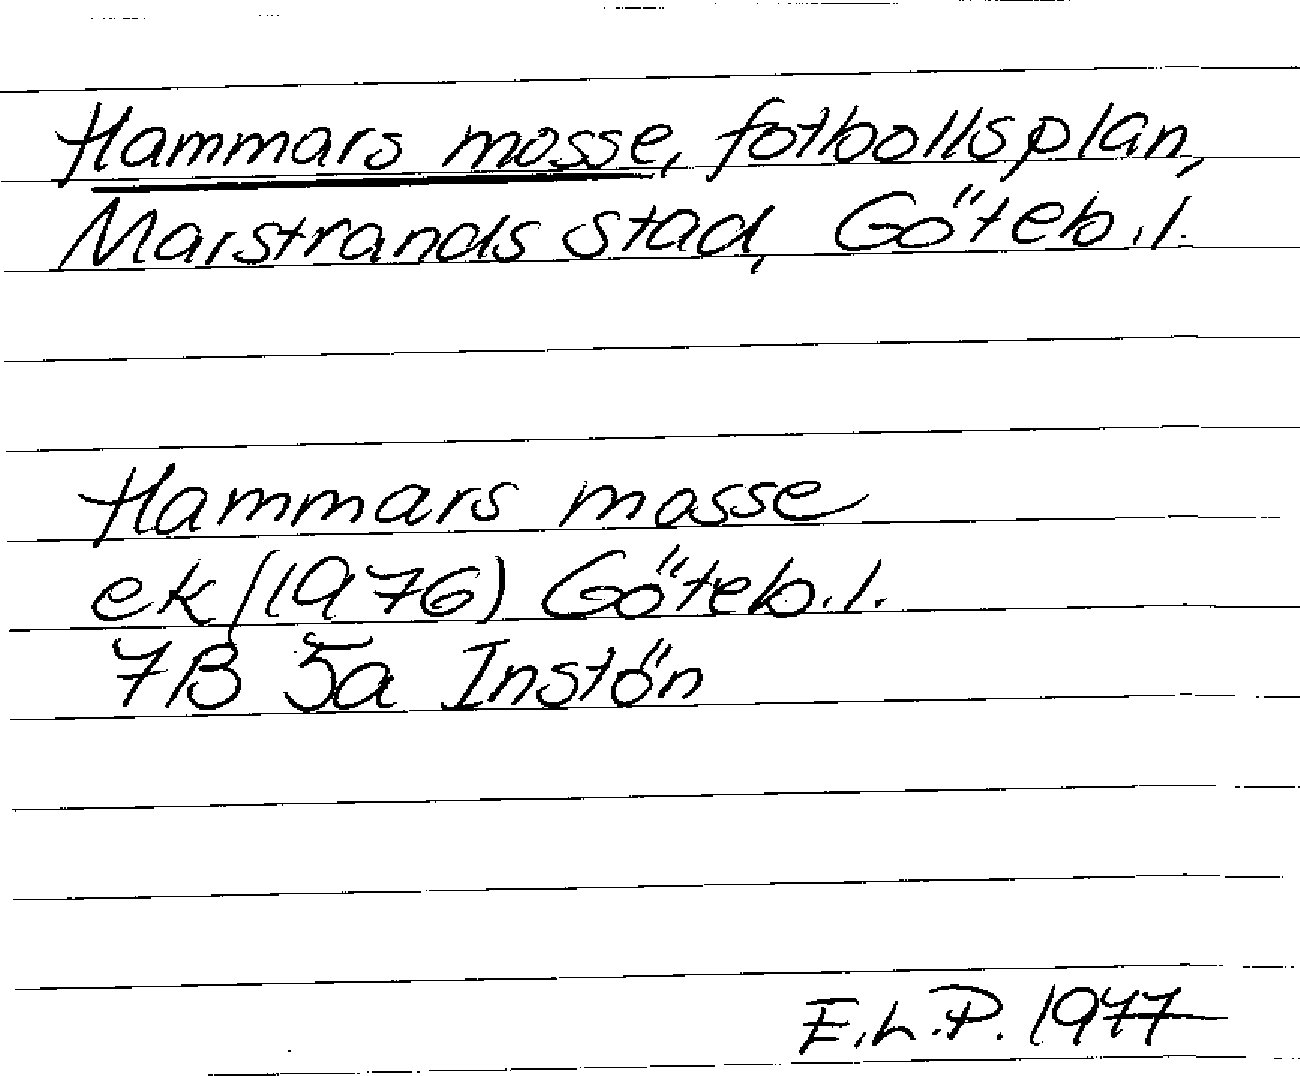 Hammars mosse, fotbollsplan,
Marstrands stad, Göteb.l.
Hammars mosse
ek/(1976) Göteb.l.
7B 5a Instön
E.L.P. 1977